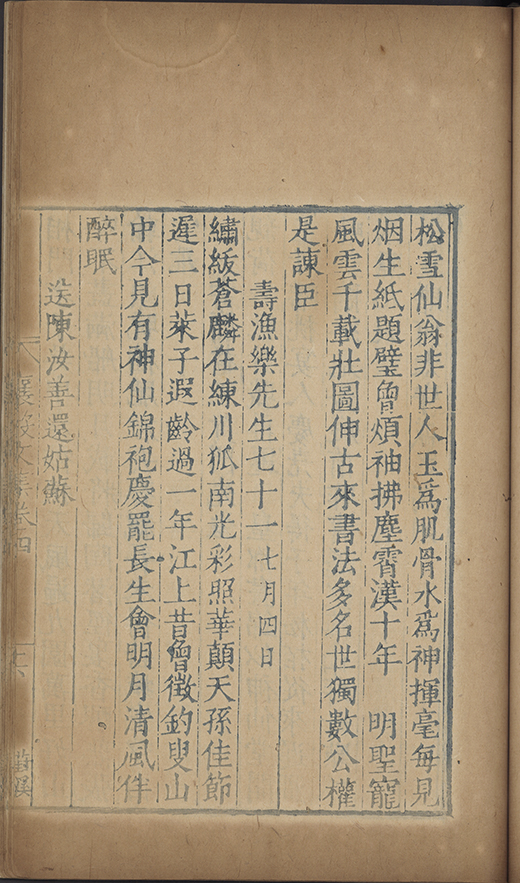 松雪仙翁非世人玉爲肌骨水爲神揮毫每見
烟生紙題壁曾煩袖拂塵霄漢十年　明聖寵
風雲千載壯圖伸古來書法多名世獨數公權
是諫臣
壽漁樂先生七十一七月四日
繡紱蒼麟在練川狐南光彩照華顛天孫佳節
遲三日萊子遐齡過一年江上昔曾徵釣叟山
中今見有神仙錦袍慶罷長生會明月清風伴
醉眠
送陳汝善還姑蘇
文集卷四